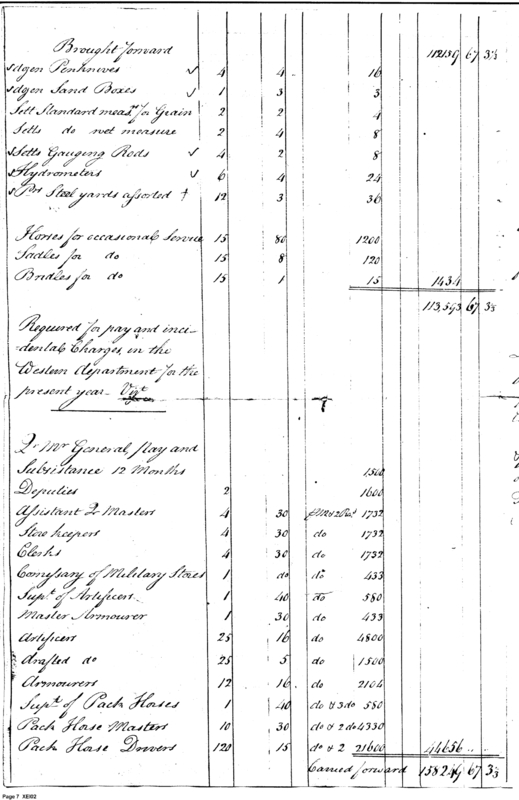 Brought forward 112159 67 3½
dozen Penknives 4 4 16
dozen Sand Boxes 1 3 3
Sett Standard meas.rs for Grain 2 2 4
Setts do wet measure 2 4 8
Setts Gauging Rods 4 2 8
Hydrometers 6 4 24
Prs Steel yards assorted † 12 3 36
Horses for occasional Service 15 80 1200
Sadles for do 15 8 120
Bridles for do 15 1 15 1434
113,593 67 3½
Required for pay and inci-
dental Charges, in the
Western department for the
present year - Vizt
Qr Mr General, pay and
Subsistance 12 Months 1500
Deputies 2 1600
Assistant Qr Masters 4 30 1732
Store keepers 4 30 do 1732
Clerks 4 30 do 1732
Comissary of Military Stores 1 do do 433
Supt. of Artificers 1 40 do 580
Master Armourer 1 30 do 433
Artificers 25 16 do 4800
drafted do 25 5 do 1500
Armourers 12 16 do 2104
Supt. of Pack Horses 1 40 do & 3 do 580
Pack Horse Masters 10 30 do & 2 do 4330
Pack Horse Drivers 120 15 do & 2 21600 44656
Carried forward 158249 67 3½
Page 7 XEI02